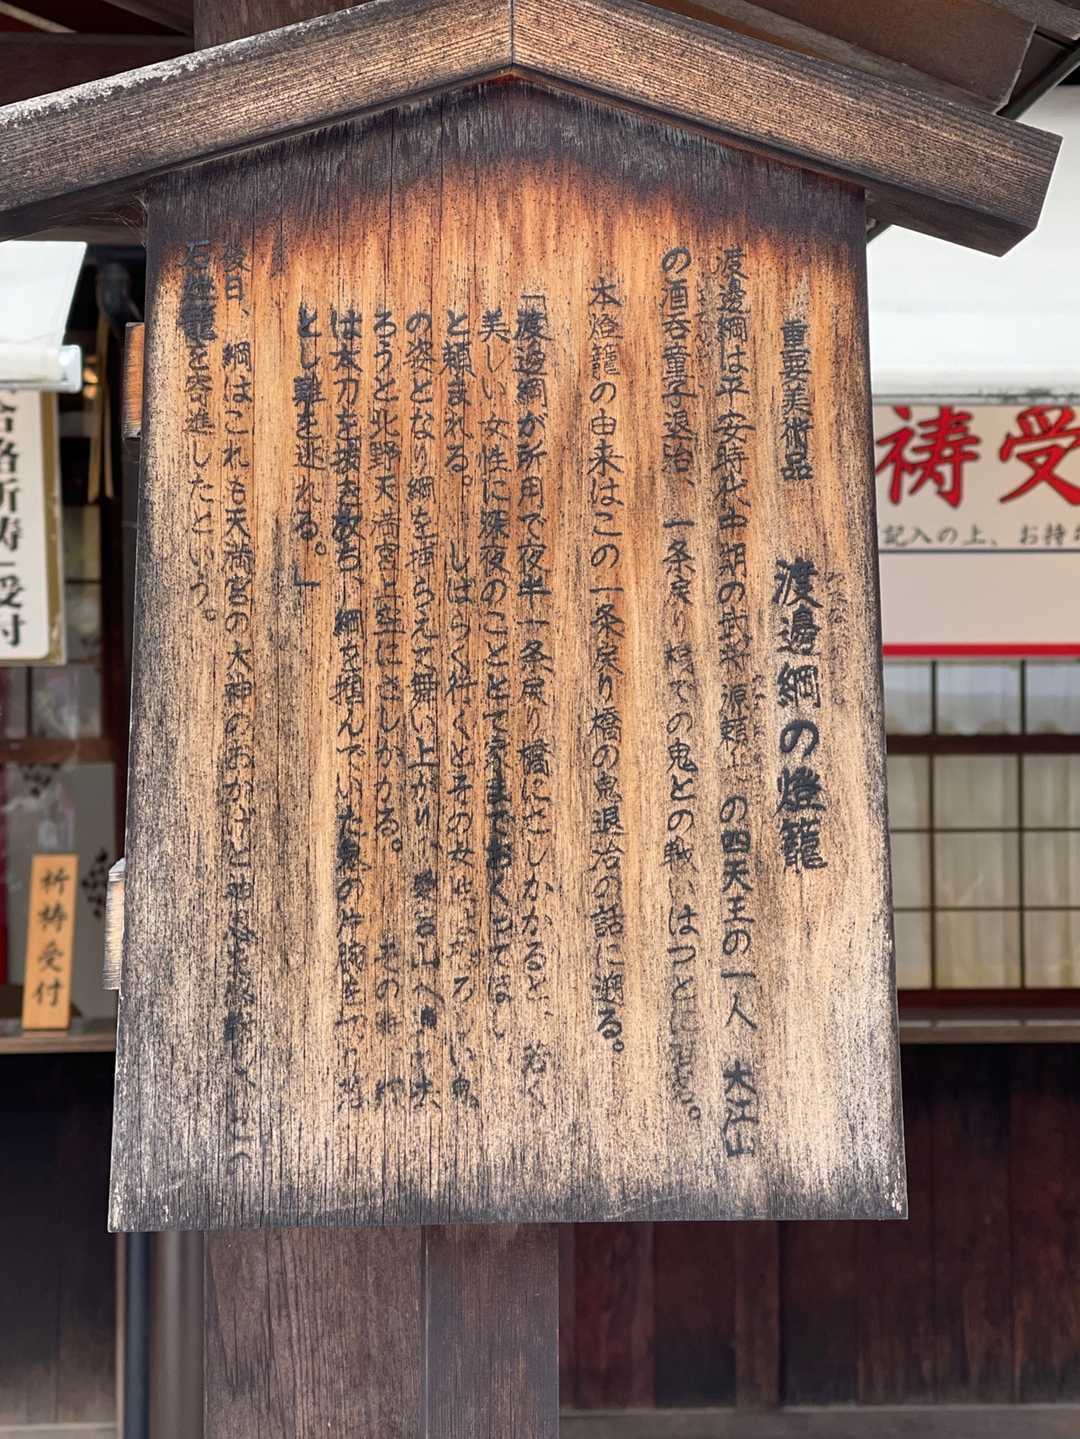 重要美術品　渡邊綱の燈籠
渡邊綱は平安時代中期の武将 源頼 の四天王の一人　大江山
の酒呑童子退治、一条戻り橋での鬼との戦いはつとに
本燈籠の由来はこの一条戻り橋の鬼退治の話に遡る。
「渡邊綱が所用で夜半一条戻り橋にさしかかると、若く
美しい女性に深夜のこととて家までおくってほしい
と頼まれる。しばらく行くとその女 い鬼
の姿となり綱を捕らえて舞い上がり、愛宕山へ
ろうと北野天満宮上空にさしかかる。その時、綱
は太刀を抜き放ち、綱を掴んでいた鬼の片腕を
とし難を逃れる。」
後日、綱はこれも天満宮の大神のおかげと
石燈籠を寄進したという。
合格祈祷受付
祈祷受付
祷受
記入の上、お持